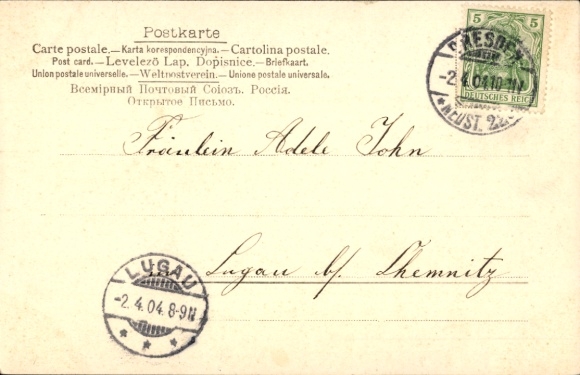 Postkarte
Carte postale.—Karta korespondencyjna.—Cartolina postale.
Post card.—Levelező Lap. Dopisnice.—Briefkaart.
Union postale universelle.—Weltpostverein.—Unione postale universale.
Всемірный Почтовый Союзъ. Россія.
Открытое Письмо.
5 5
DRESDEN
-2.4.04.10-11V
NEUST.
DEUTSCHES REICH
Fräulein Adele John
in Lugau b/ Chemnitz
LUGAU
-2.4.04.8-9N